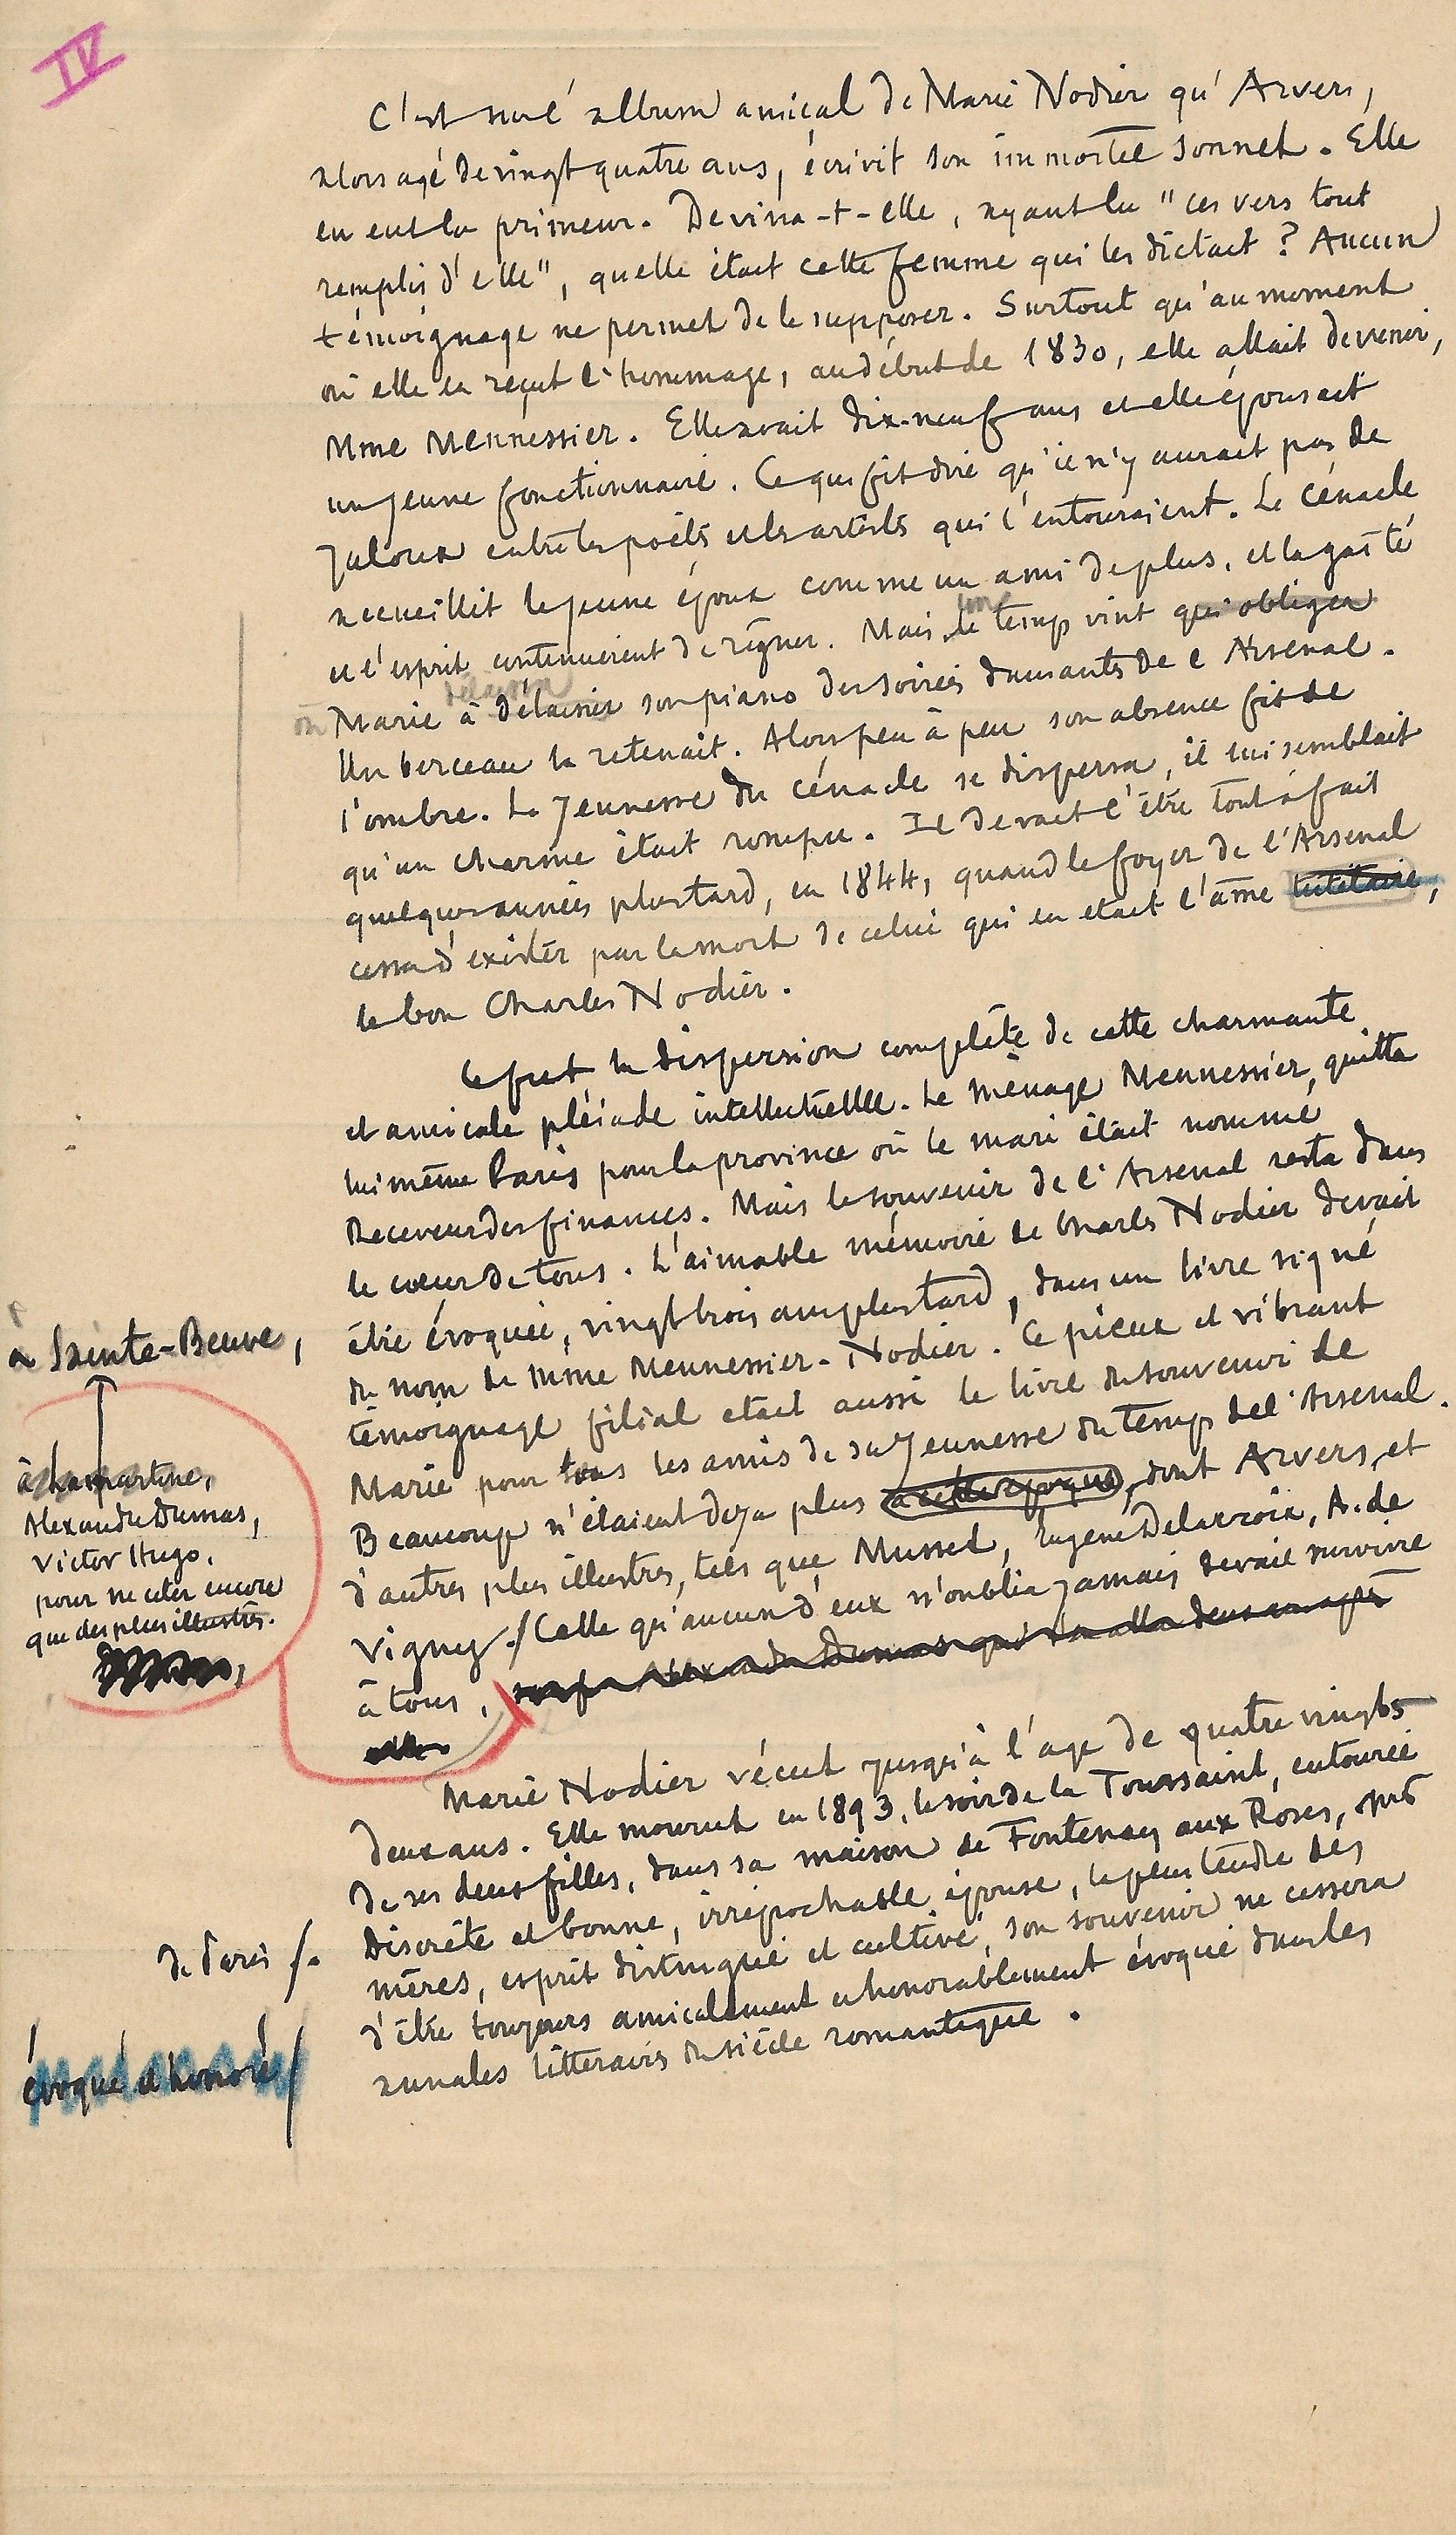 IV
C'est sur l'album amical de Marie Nodier qu'Arvers,
alors agé de vingt quatre ans, écrivit son immortel sonnet. Elle
en eut la primeur. Devina-t-elle, ayant lu "ces vers tout
remplis d'elle", quelle était cette femme qui les dictait ? Aucun
témoignage ne permet de le supposer. Surtout qu'au moment
où elle en reçut l'hommage, au début de 1830, elle allait devenir,
Mme Mennessier. Elle avait dix-neuf ans et elle épousait
un jeune fonctionnaire. Ce qui fit dire qu'il n'y aurait pas de
jaloux entre les poètes et les artistes qui l'entouraient. Le cénacle
accueillit le jeune époux comme un ami de plus, et la gaîté
et l'esprit continuèrent de régner. Mais le temps vint qui obligea
un
délaissa
où Marie à délaisser son piano des soirées dansantes de l'Arsenal.
Un berceau la retenait. Alors peu à peu son absence fit de
l'ombre. La jeunesse du cénacle se dispersa, il lui semblait
qu'un charme était rompu. Il devait l'être tout à fait
quelques années plus tard, en 1844, quand le foyer de l'Arsenal
cessa d'exister par la mort de celui qui en était l'âme tutélaire,
le bon Charles Nodier.
Ce fut la dispersion complète de cette charmante
et amicale pléiade intellectuelle. Le ménage Mennessier, quitta
lui même Paris pour la province où le mari était nommé
Receveur des finances. Mais le souvenir de l'Arsenal resta dans
le cœur de tous. L'aimable mémoire de Charles Nodier devait
être évoquée, vingt trois ans plus tard, dans un livre signé
du nom de Mme Mennessier-Nodier. Ce pieux et vibrant
témoignage filial était aussi le livre du souvenir de
Marie pour tous les amis de sa jeunesse du temps de l'Arsenal.
Beaucoup n'étaient deja plus à cette époque, dont Arvers, et
d'autres plus illustres, tels que Musset, Eugène Delacroix, A. de
Vigny./ Celle qu'aucun d'eux n'oublia jamais devait survivre
à tous, sauf à Alexandre Dumas qui s'en alla deux ans après
à Sainte-Beuve,
à Lamartine,
Alexandre Dumas,
Victor Hugo,
pour ne citer encore
que des plus illustres.
Marie Nodier vécut jusqu'à l'age de quatre vingts
deux ans. Elle mourut en 1893, le soir de la Toussaint, entourée
de ses deux filles, dans sa maison de Fontenay aux Roses, près
de Paris /.
Discrète et bonne, irréprochable épouse, la plus tendre des
mères, esprit distingué et cultivé, son souvenir ne cessera
d'être toujours amicalement et honorablement évoqué dans les
évoqué et honoré /
annales littéraires du siècle romantique.